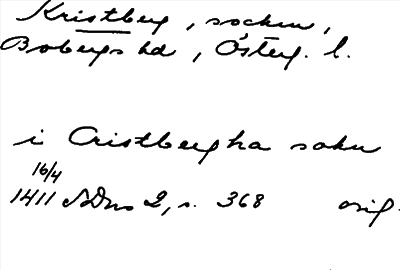 Kristberg, socken,
Bobergs hd, Österg. l.
i Cristbergha sokn
16/4
1411 SDns 2, s. 368 orig.